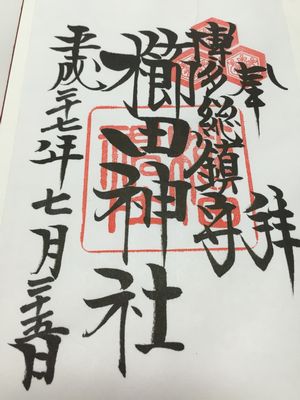 奉拝
博多総鎮守
櫛田神社
平成二十七年七月二十五日